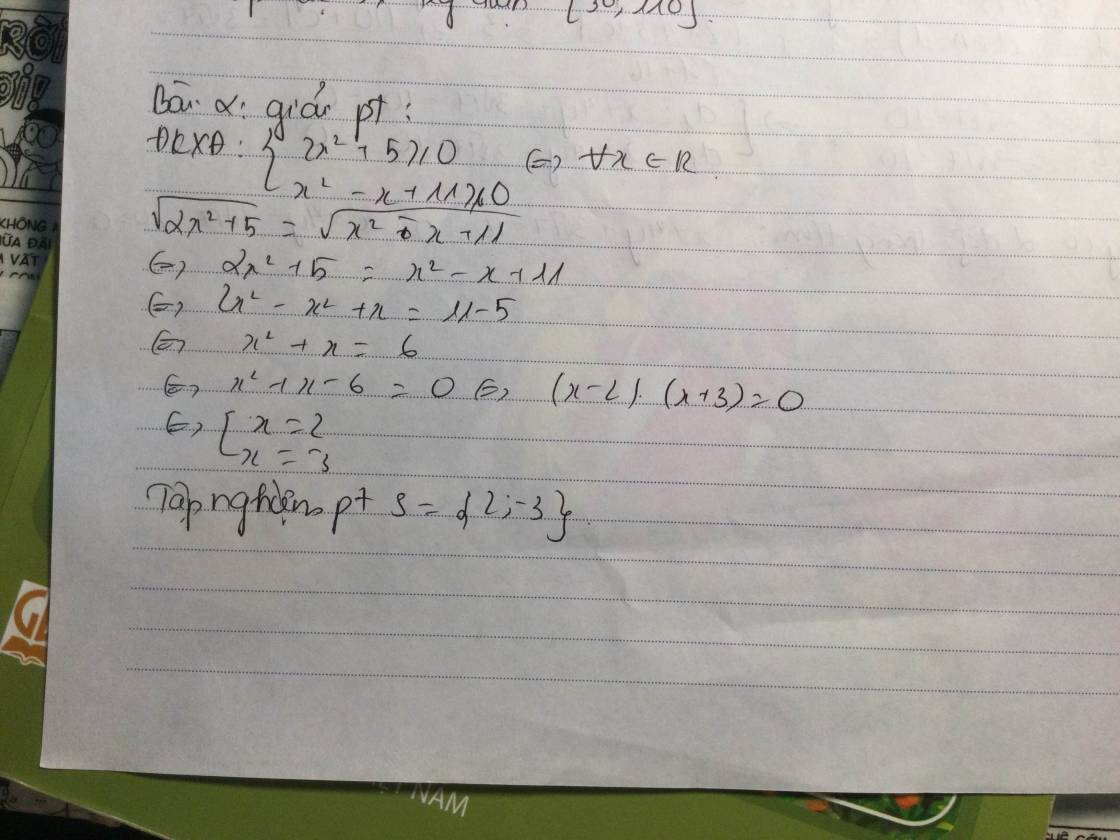 [30; 110].
RỜI
ƠI!
Bài 2: giải pt:
ĐKXĐ: { 2x² + 5 ≥ 0 ⇔ ∀x ∈ R.
x² - x + 11 ≥ 0
√2x² + 5 = √x² - x + 11
⇔ 2x² + 5 = x² - x + 11
⇔ 2x² - x² + x = 11 - 5
⇔ x² + x = 6
⇔ x² + x - 6 = 0 ⇔ (x - 2). (x + 3) = 0
⇔ [ x = 2
x = -3
Tập nghiệm pt S = {2; -3}.
KHÔNG
VẬT
G
ỆT NAM